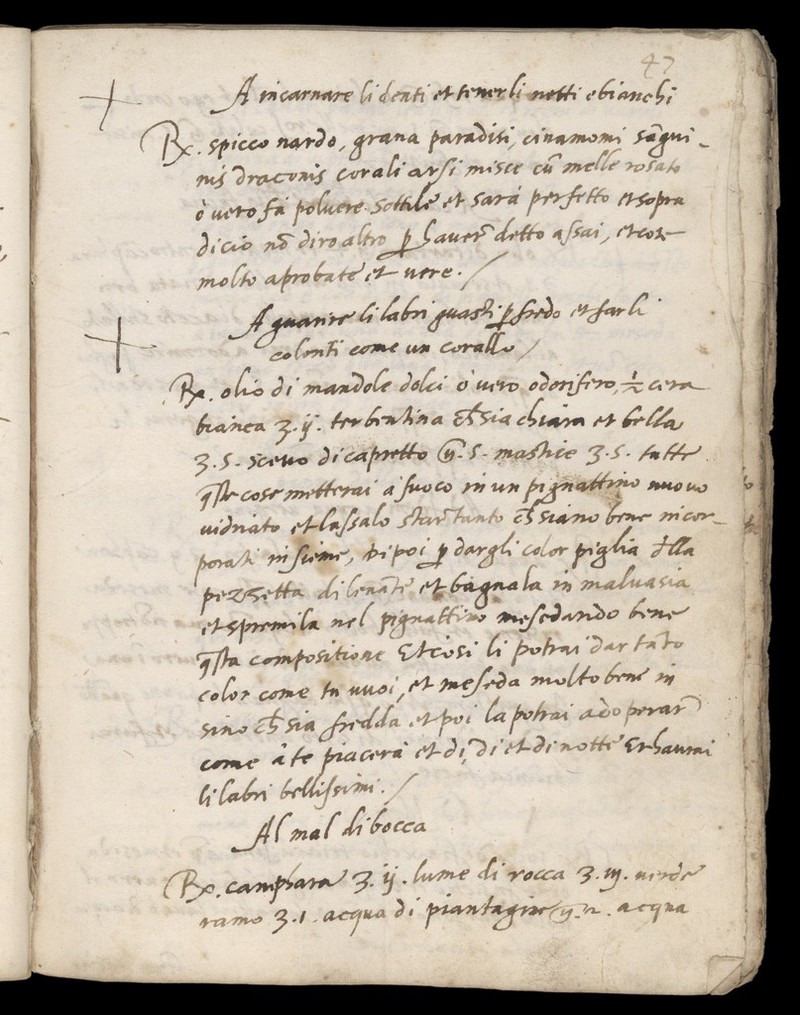 47
A incarnare li denti et tenerli netti e bianchi
Rx. spicco nardo, grana paradisi, cinamomi sãgui-
nis draconis corali arsi misce cũ melle rosato
ò vero fá polvere sottile et sará perfetto et sopra
di cio nõ diro altro p haver detto assai, et cose
molto aprobate et vere. /
A guarire li labri guasti p fredo et farli
coloriti come un corallo /
Rx. olio di mandole dolci ò vero odorifero, cera
bianca ʒ. ij. terbentina ch sia chiara et bella
ʒ. s. scevo di capretto s. mastice ʒ. s. tutte
qste cose metterai à fuoco in un pignattino nuovo
vidriato et lassalo star tanto ch siano bene incor-
porati insieme, di poi p dargli color piglia della
pezzetta di levãte et bagnala in malvasia
et spremila nel pignattino mesedando bene
qsta compositione Et cosi li potrai dar tãto
color come tu vuoi, et meseda molto bene in
sino ch sia fredda et poi la potrai adoperar
come à te piacerá et di, di et di notte Et haurai
li labri bellissimi. /
Al mal di bocca
Rx. camphara ʒ. ij. lume di rocca ʒ. iij. verde
ramo ʒ. 1. acqua di piantagine acqua